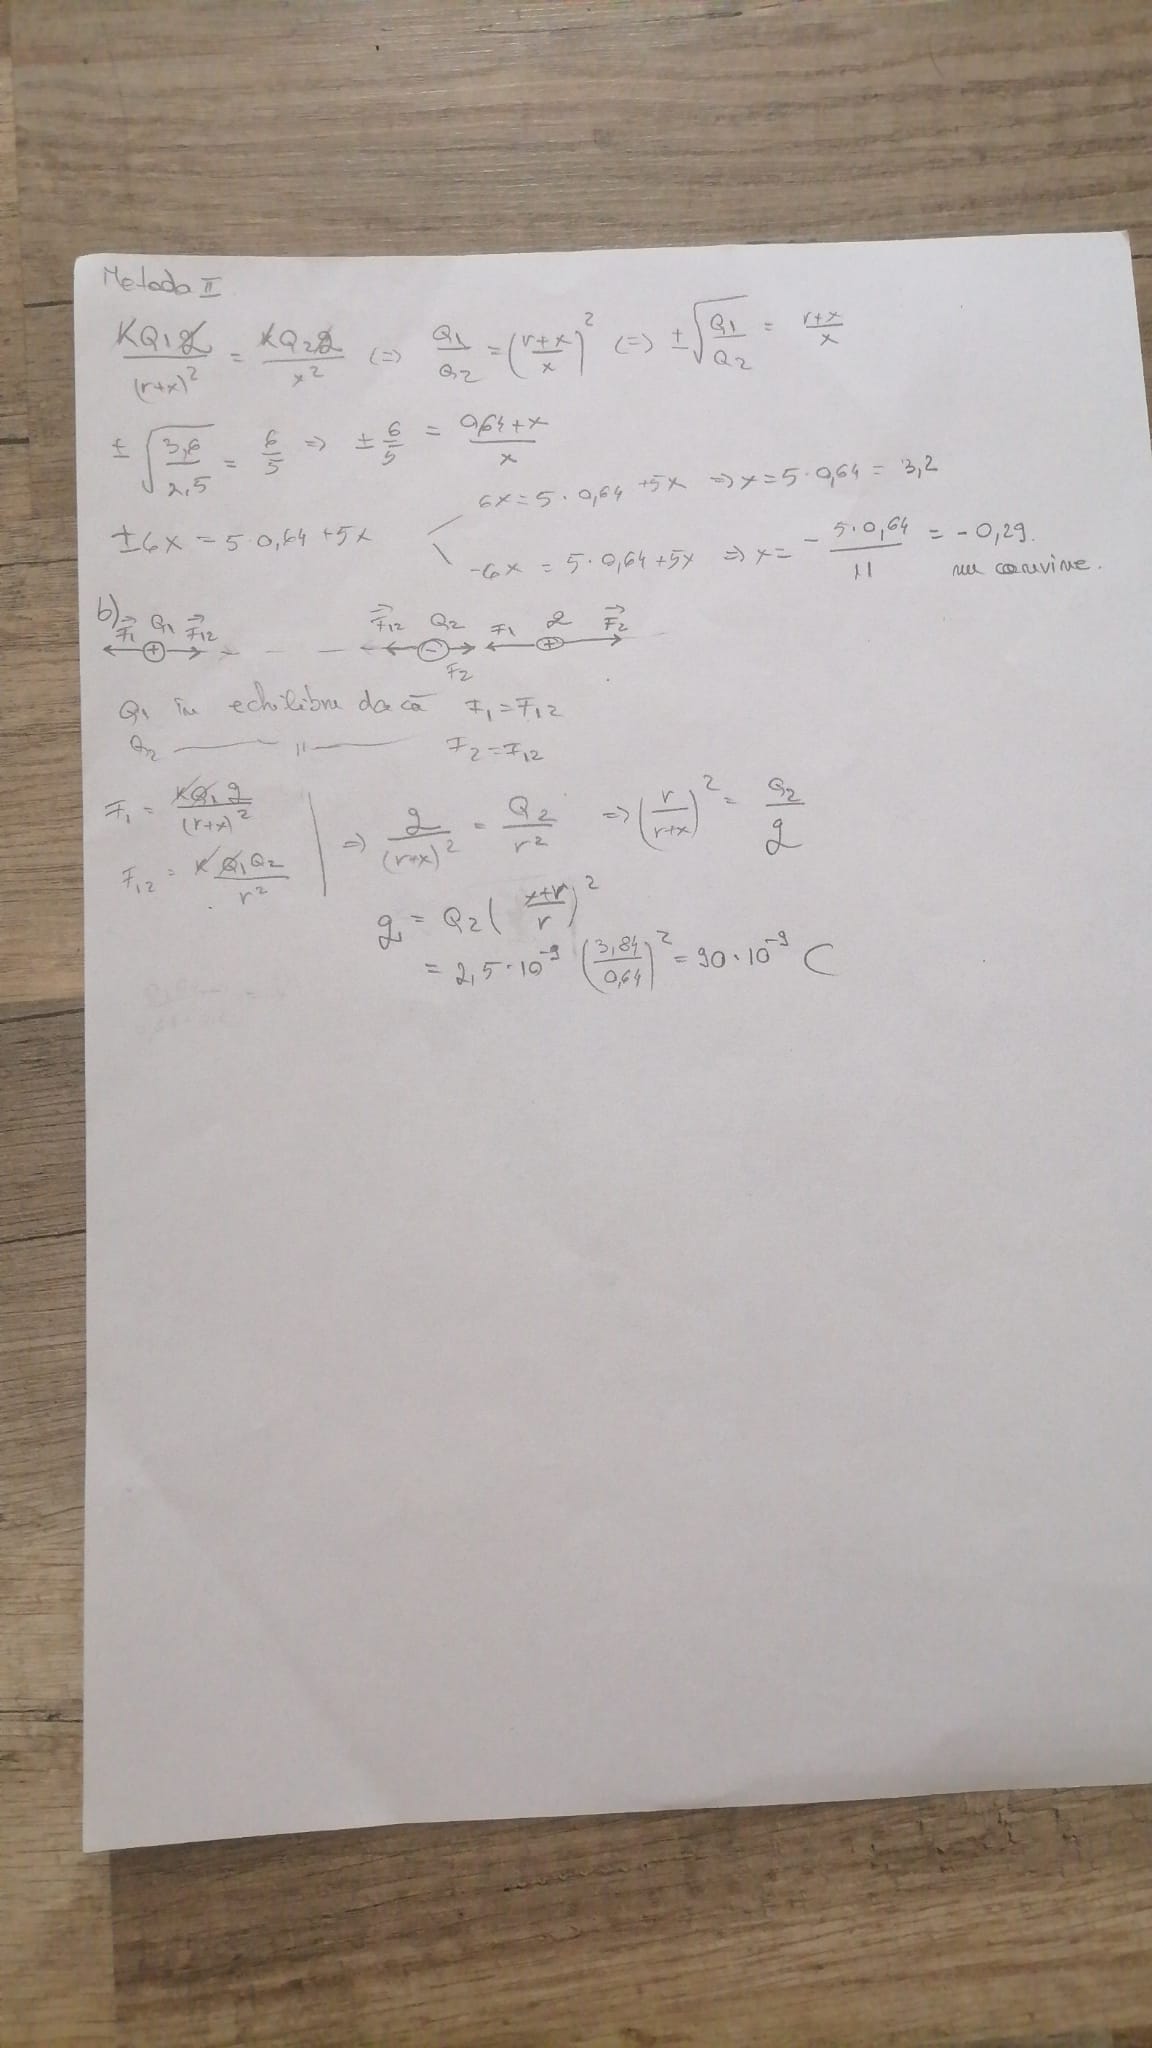 Metoda II
KQ₁q/(r+x)² = KQ₂q/x² (=> Q₁/Q₂ = (r+x/x)² (=> ±√Q₁/Q₂ = r+x/x
±√3,6/2,5 = 6/5 => ±6/5 = 0,64+x/x
6x = 5·0,64 +5x => x = 5·0,64 = 3,2
±6x = 5·0,64 +5x
-6x = 5·0,64+5x => x = - 5·0,64/11 = -0,29. nu convine.
b)
F₁ Q₁ F₁₂ F₁₂ Q₂ F₁ q F₂
+ - +
F₂
Q₁ în echilibru dacă F₁ = F₁₂
Q₂ — 11 — F₂ = F₁₂
F₁ = KQ₁q/(r+x)²
=> q/(r+x)² = Q₂/r² => (r/r+x)² = Q₂/q
F₁₂ = KQ₁Q₂/r²
q = Q₂(x+r/r)²
= 2,5·10⁻⁹ (3,84/0,64)² = 90·10⁻⁹ C